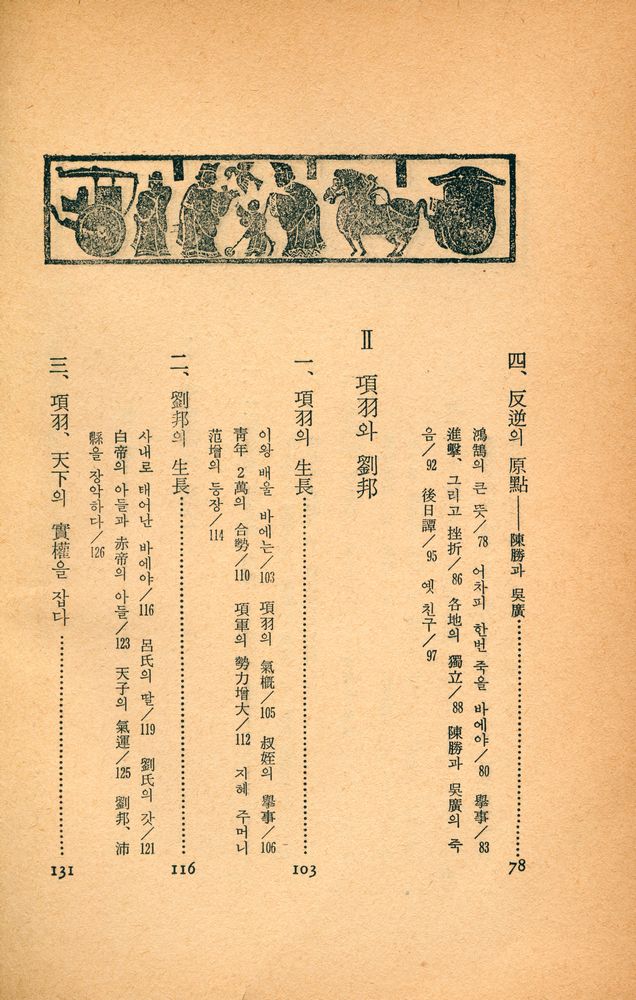 四、反逆의 原點——陳勝과 吳廣 78
鴻鵠의 큰 뜻/78 어차피 한번 죽을 바에야/80 擧事/83
進擊、그리고 挫折/86 各地의 獨立/88 陳勝과 吳廣의 죽
음/92 後日譚/95 옛 친구/97
Ⅱ 項羽와 劉邦
一、項羽의 生長 103
이왕 배울 바에는/103 項羽의 氣槪/105 叔姪의 擧事/106
靑年 2萬의 合勢/110 項軍의 勢力增大/112 지혜 주머니
范增의 등장/114
二、劉邦의 生長 116
사내로 태어난 바에야/116 呂氏의 딸/119 劉氏의 갓/121
白帝의 아들과 赤帝의 아들/123 天子의 氣運/125 劉邦、沛
縣을 장악하다/126
三、項羽、天下의 實權을 잡다 131